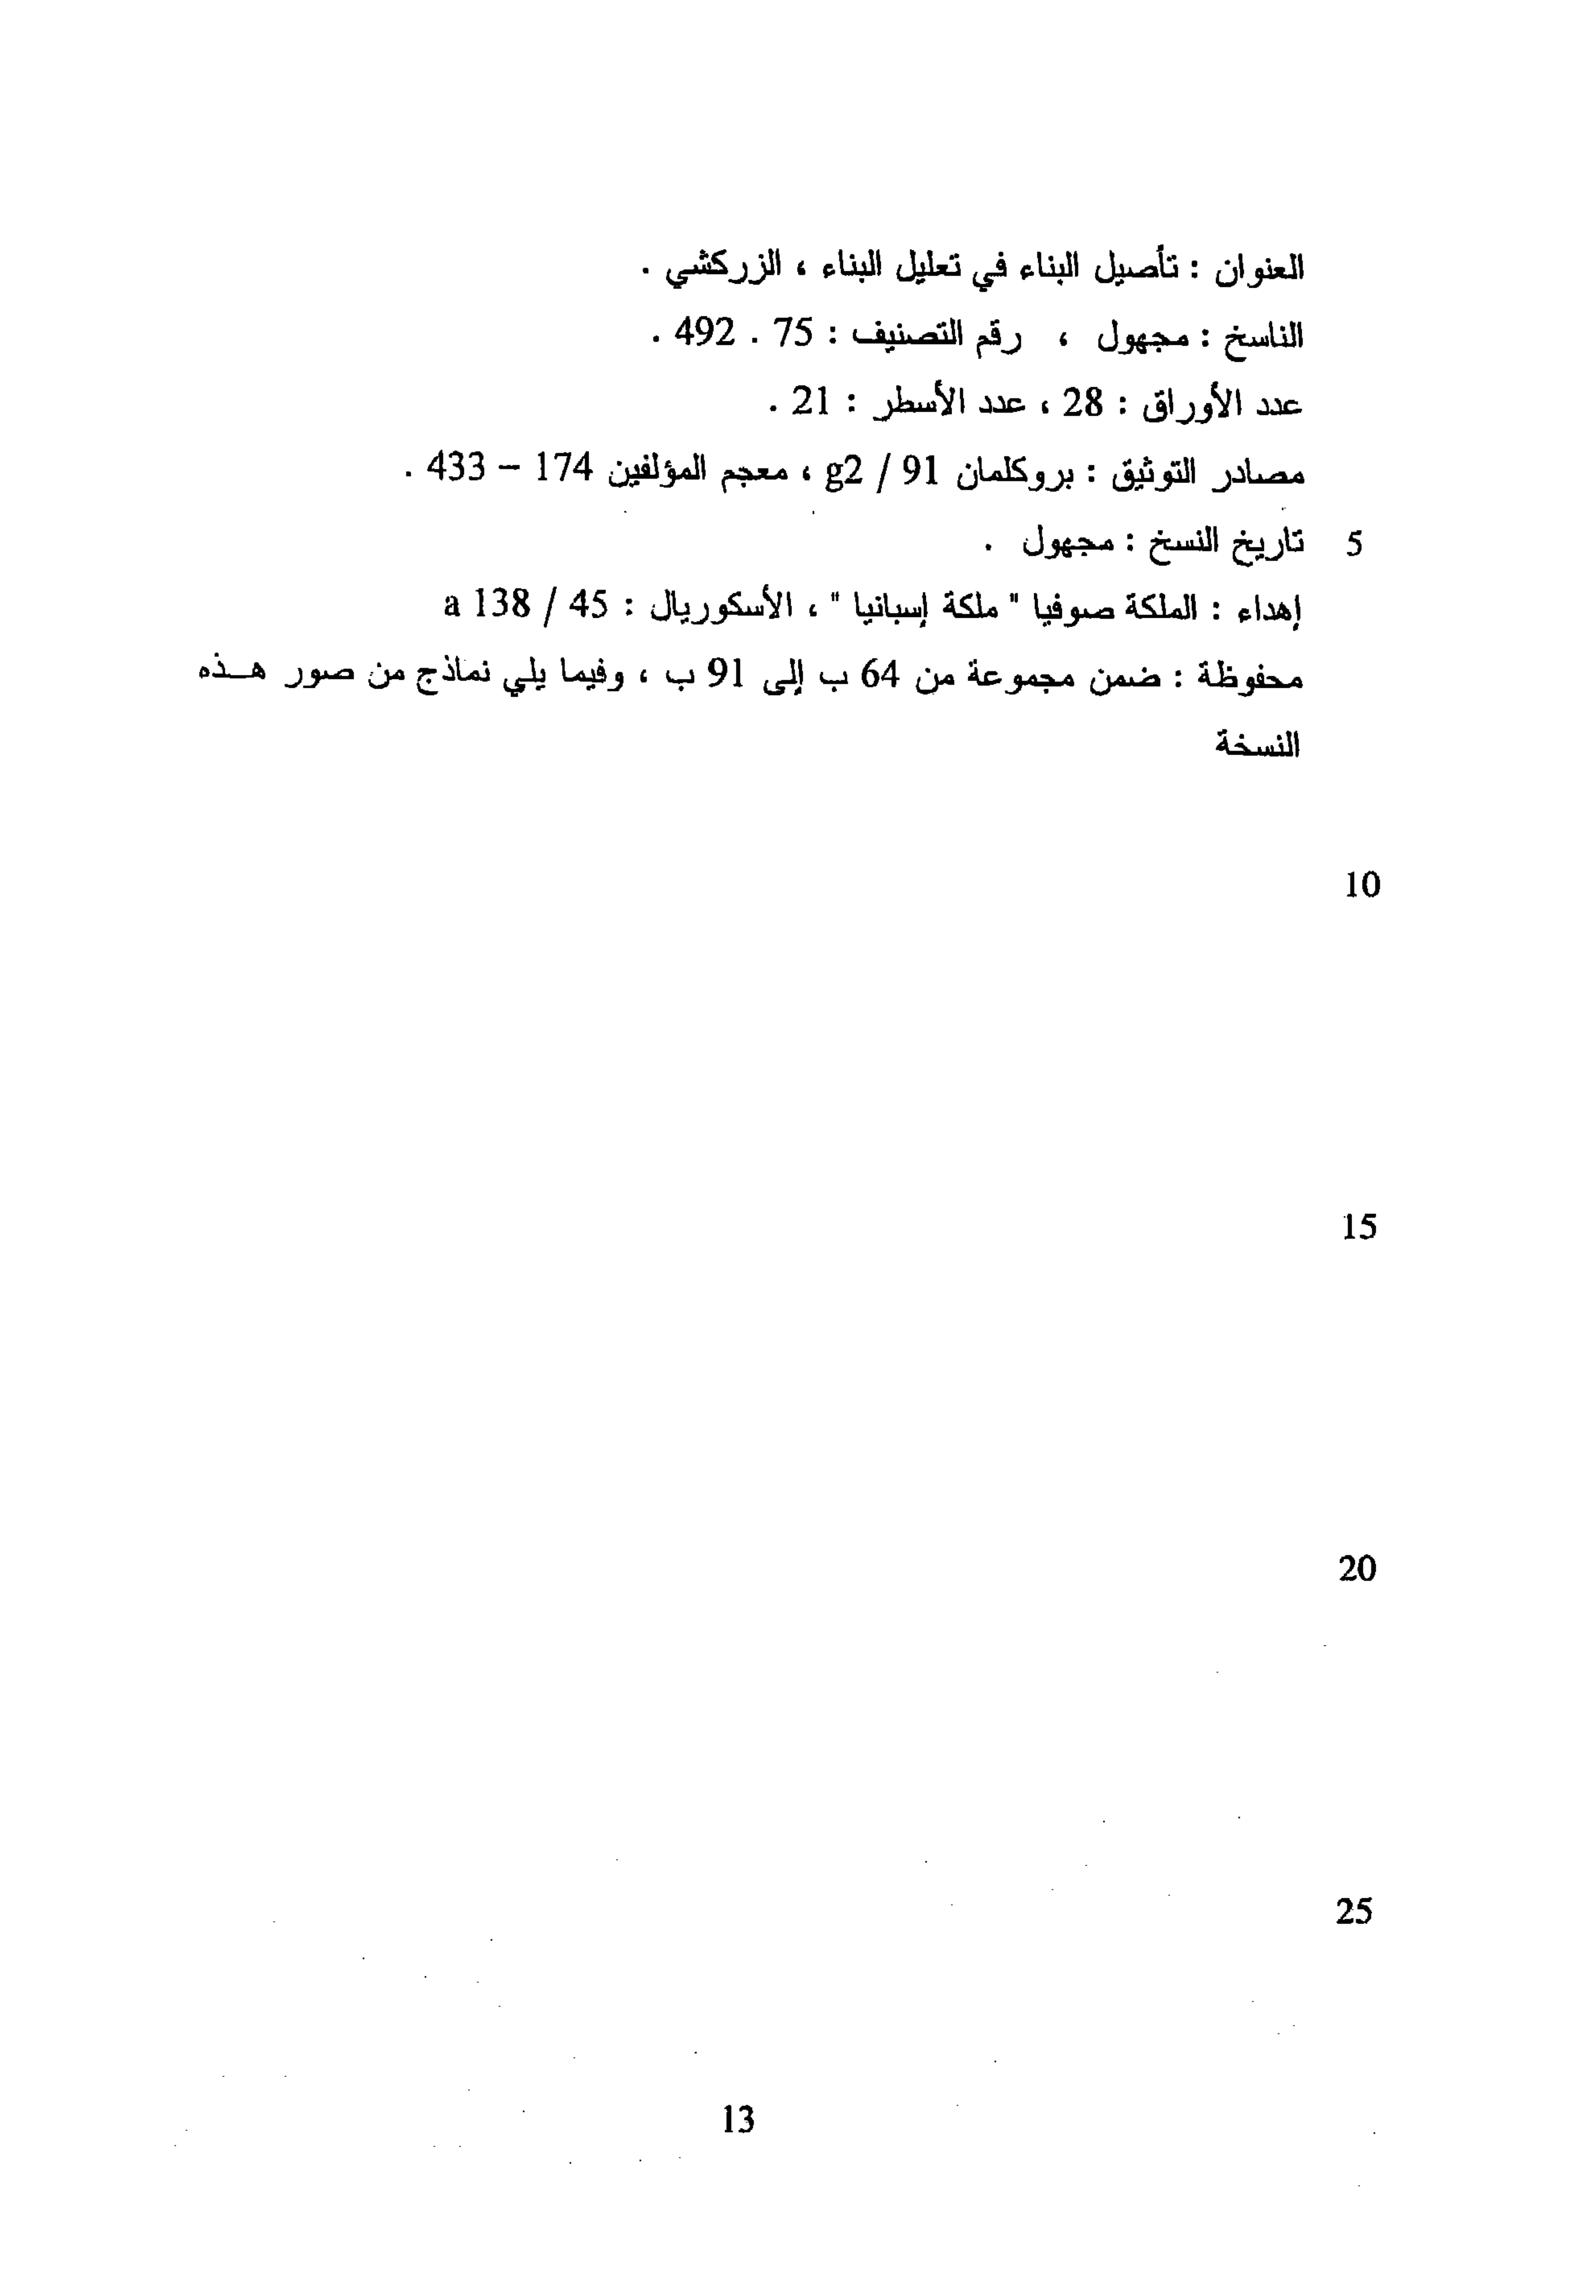 العنوان : تأصيل البناء في تعليل البناء ، الزركشي .
الناسخ : مجهول ، رقم التصنيف : 75 . 492 .
عدد الأوراق : 28 ، عدد الأسطر : 21 .
مصادر التوثيق : بروكلمان 91 / g2 ، معجم المؤلفين 174 – 433 .
5 تاريخ النسخ : مجهول .
إهداء : الملكة صوفيا " ملكة إسبانيا " ، الأسكوريال : 45 / 138 a
محفوظة : ضمن مجموعة من 64 ب إلى 91 ب ، وفيما يلي نماذج من صور هـذه
النسخة
10
15
20
25
13